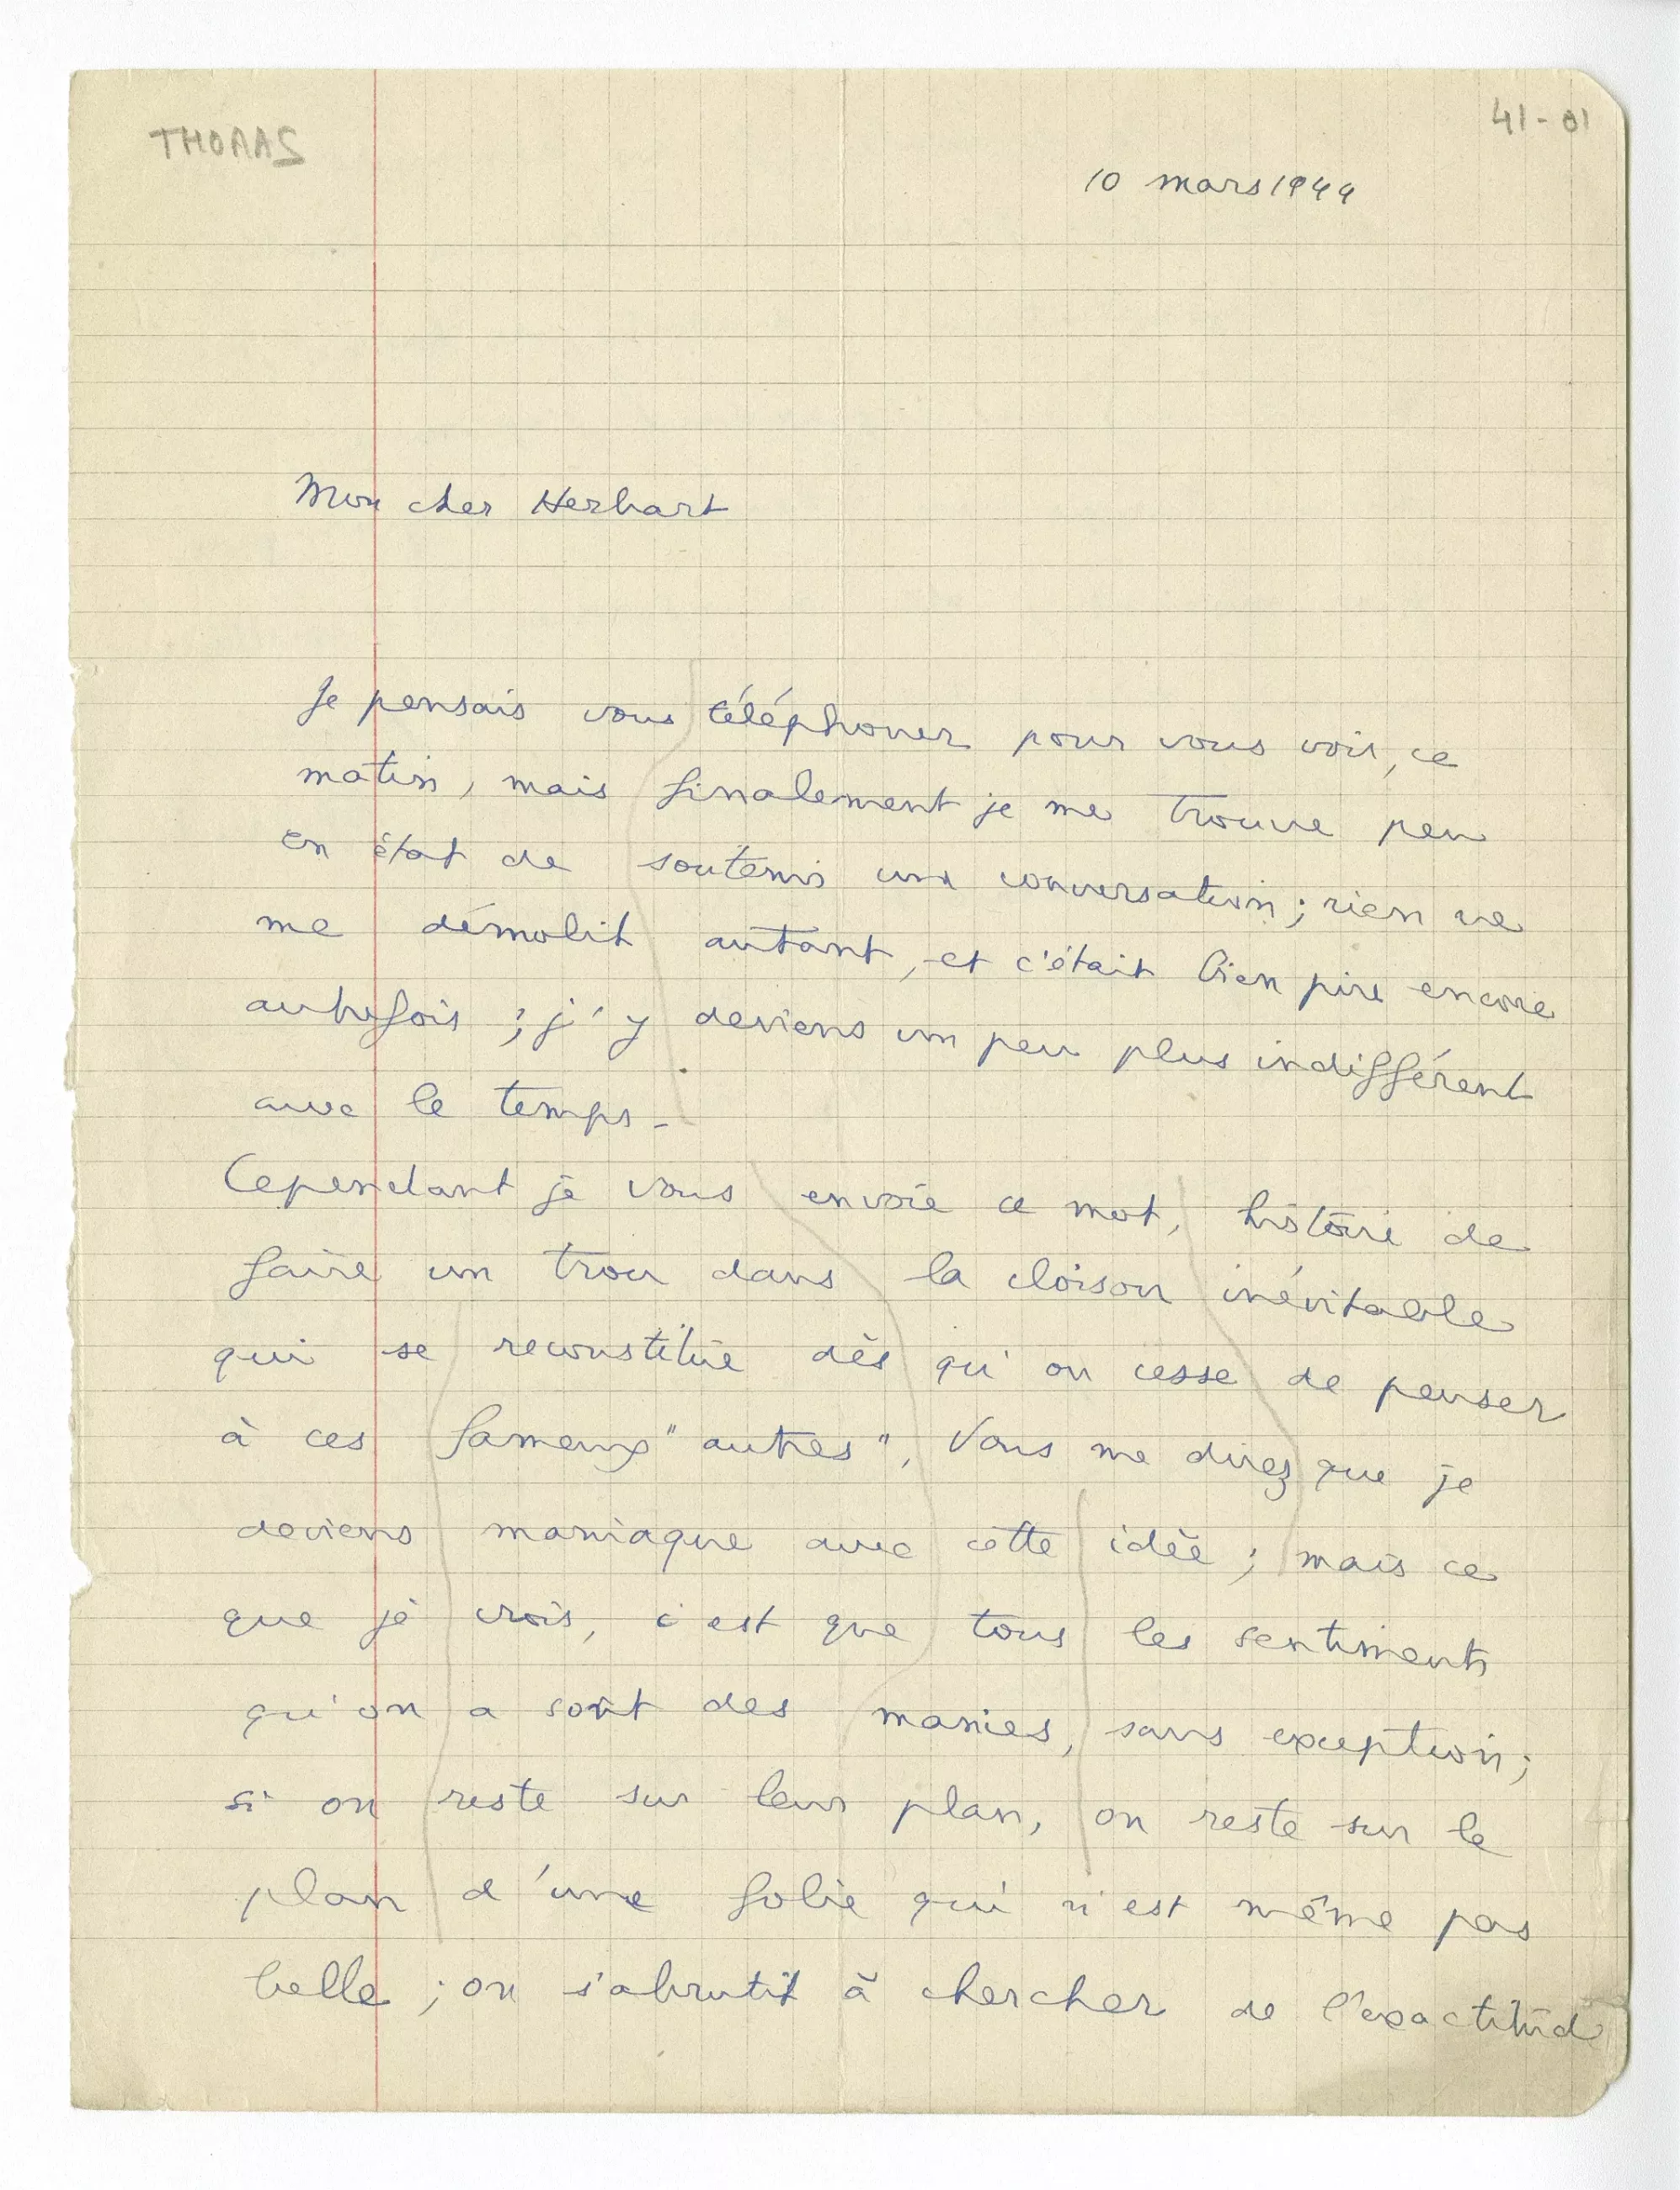 THOMAS
41-01
10 mars 1944
Mon cher Herbart
Je pensais vous téléphoner pour vous voir, ce
matin, mais finalement je me trouve peu
en état de soutenir une conversation ; rien ne
me démolit autant, et c'était bien pire encore
autrefois ; j'y deviens un peu plus indifférent
avec le temps -
Cependant je vous envoie ce mot, histoire de
faire un trou dans la cloison inévitable
qui se reconstitue dès qu'on cesse de penser
à ces fameux "autres". Vous me direz que je
deviens maniaque avec cette idée ; mais ce
que je crois, c'est que tous les sentiments
qu'on a sont des manies, sans exception ;
si on reste sur leur plan, on reste sur le
plan d'une folie qui n'est même pas
belle ; on s'abrutit à chercher de l'exactitude